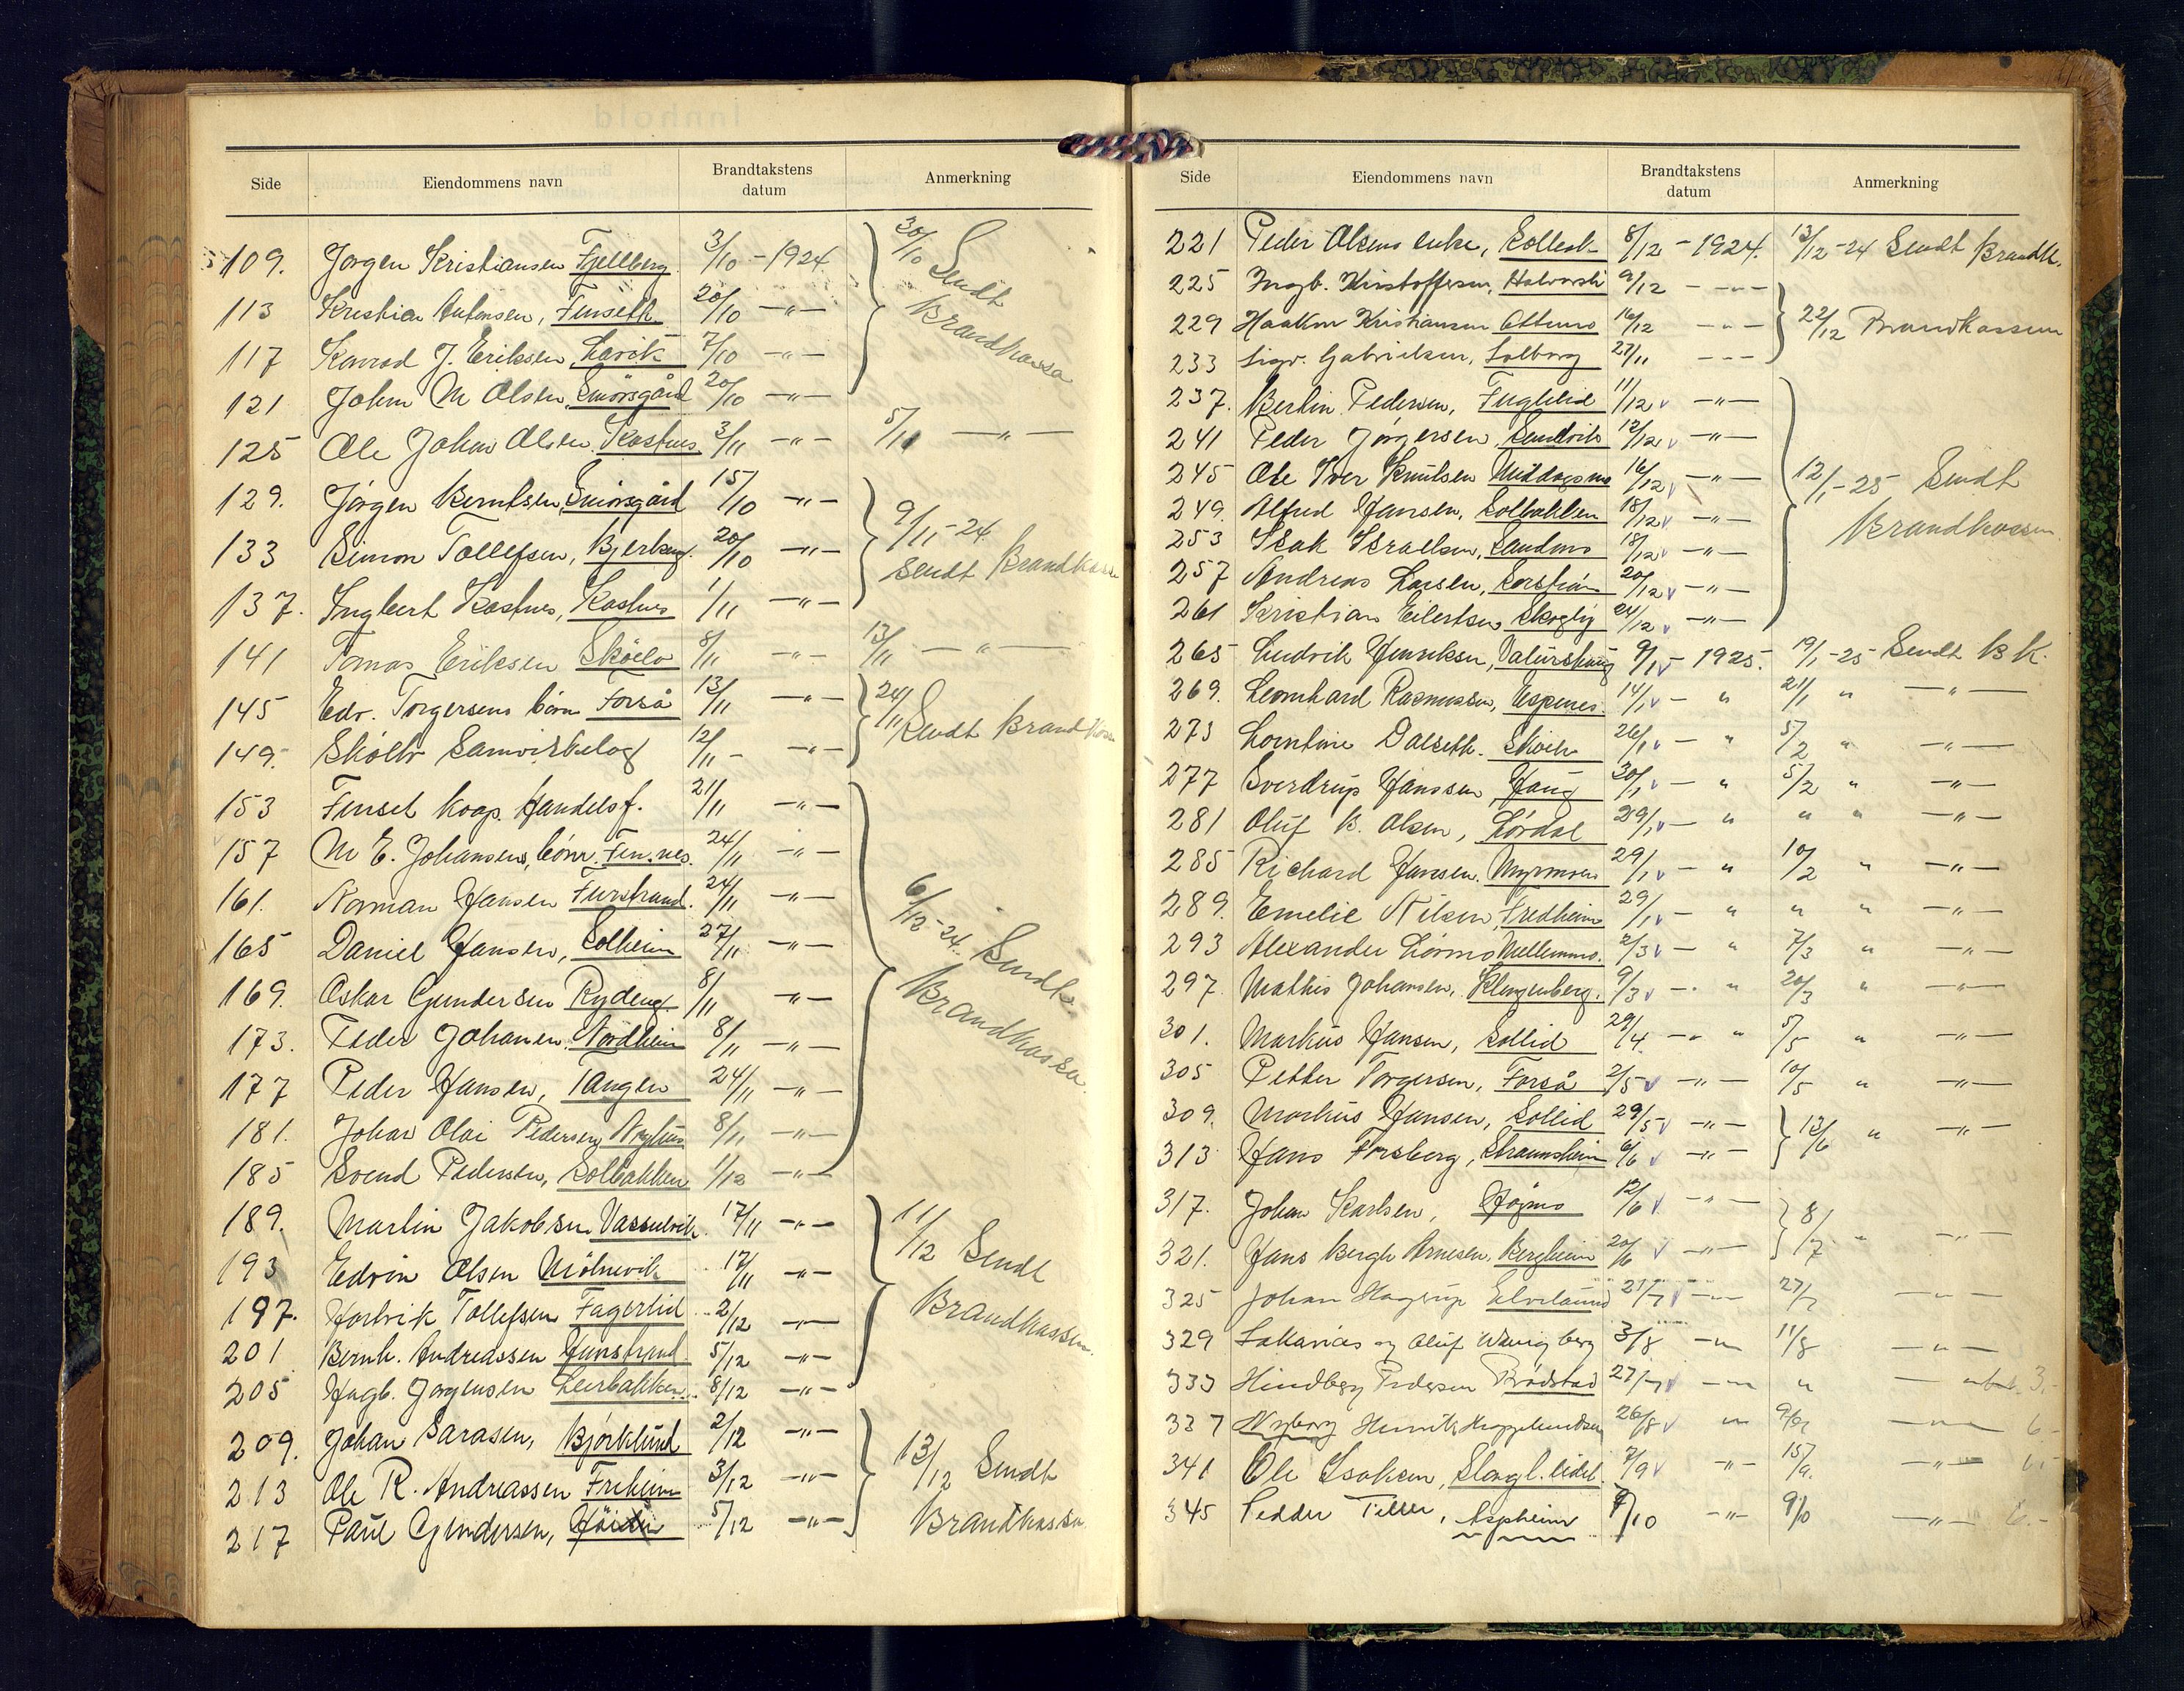 Side Eiendommens navn Brandtakstens datum Anmerkning
109. Jørgen Kristiansen Fjellberg 3/10 - 1924 30/10 Sendt Brandkassa
113 Kristian Antonsen, Finseth 20/10 -"-
117 Konrad J. Eriksen, Lavik 7/10 -"-
121 Johan M Olsen, Smörsgård 20/10 -"-
125 Ole Johan Olsen, Kastnes 3/11 -"- 5/11 -"-
129. Jørgen Berntsen, Smörsgård 15/10 -"- 9/11-24. Sendt Brandkasse
133 Simon Tollefsen, Bjerkeng. 20/10 -"-
137. Ingbert Kastnes, Kastnes 1/11 -"-
141 Tomas Eriksen Skøelv 8/11 -"- 13/11 -"-
145 Edv. Torgersens bönr Forså 13/11 -"- 24/11 Sendt Brandkassa
149. Skøelv Samvirkelag 12/11 - -"-
153 Finset koop. Handelsf. 21/11 -"- 6/12-24. Sendt. Brandkassen
157 M E. Johansens, bönr. Fin.nes. 24/11 -"-
161. Norman Hansen Furstrand. 24/11 -"-
165 Daniel Hansen, Solheim 27/11 -"-
169. Oskar Gundersen Rydeng. 8/11 -"-
173. Peder Johansen, Nordheim 8/11 -"-
177 Peder Hansen, Tangen 24/11 -"-
181. Johan Olai Pedersen, Nyhus 8/11 -"-
185 Svend Pedersen, Solbakken 1/12 -"-
189. Martin Jakobsen Vasselvik. 17/11 -"- 11/12 Sendt Brandkassen.
193 Edvin Olsen Mölnevik 17/11 -"-
197. Hartvik Tollefsen Fagerlid 2/12 -"-
201 Bernh. Andreassen Finstrand 5/12 -"-
205 Ingb. Jørgensen Leirbakken. 8/12 -"-
209. Johan Sarasen, Bjørklund 2/12 -"- 13/12 Sendt Brandkassa
213 Ole R. Andreassen Freheim 3/12 -"-
217 Paul Gundersen, 5/12 -"-
Side Eiendommens navn Brandtakstens datum Anmerkning
221 Peder Olsens enke, 8/12 - 1924. 13/12-24 Sendt Brandk.
225 Ingb. Kristoffersen, 9/12 -"- 22/12 Brandkassen
229 Haakon Kristiansen 16/12 -"-
233 Sigv. Gabrielsen, Solborg 27/11 -"-
237. Bertin Pedersen, Fuglelid 11/12 -"- 12/1-25 Sendt Brandkassen.
241 Peder Jørgensen, Sandvik 12/12 -"-
245 Ole Iver Knutsen Middagsmo 16/12 -"-
249. Alfred Hansen, Solbakken 18/12 -"-
253 Isak Israelsen, Sandmo 18/12 -"-
257 Andreas Larsen, 20/12 -"-
261 Kristian Eilertsen Skoglig 24/12 -"-
265 Ludvik Henriksen, Valurshaug 9/1 - 1925. 19/1-25 Sendt B K.
269. Leonhard Rasmussen, Espenes. 14/1 - " 21/1 " -"-
273 Lorntine Dalseth. Skøelv 26/1 - " 5/2 " -"-
277 Sverdrup Hanssen Haug 30/1 - " 5/2 " -"-
281 Oluf B. Olsen, Lördal 29/1 - " " " -"-
285 Richard Hansen. Myrmoen 29/1 - " 10/2 " -"-
289. Emelie Nilsen, Fredheim 29/1 - " " " -"-
293 Alexander Lörmo Mellemmo. 2/3 - " 7/3 " -"-
297. Mathis Johansen, Klingenberg. 9/3 - " 20/3 " -"-
301. Markus Hansen, Sollid 29/4 - " 5/5 " -"-
305 Petter Torgersen, Forså 2/5 -"- 10/5 " -"-
309. Markus Hansen, Sollid 29/5 -"- 13/6 " -"-
313 Hans Forsberg, Straumsheim 6/6 -"-
317. Johan Karlsen, Høgmo 12/6 -"- 8/7 " -"-
321. Hans Bergh Arnesen, Bergheim 20/6 -"-
325 Johan Hagerup Elvelund 27/7 -"- 27/7 -"-
329 Sakarias og Oluf Wangberg 3/8 -"- 11/8 -"-
333 Hindberg Pedersen Brødstad 27/7 -"- " -"- 3.-
337 Nyborg 26/8 " -"- 6.-
341 Ole Isaksen, 7/9 -"- 15/9. -"- 6.-
345 Pedder Tiller, Aspheim 7/10 -"- 9/10 -"- 6.-